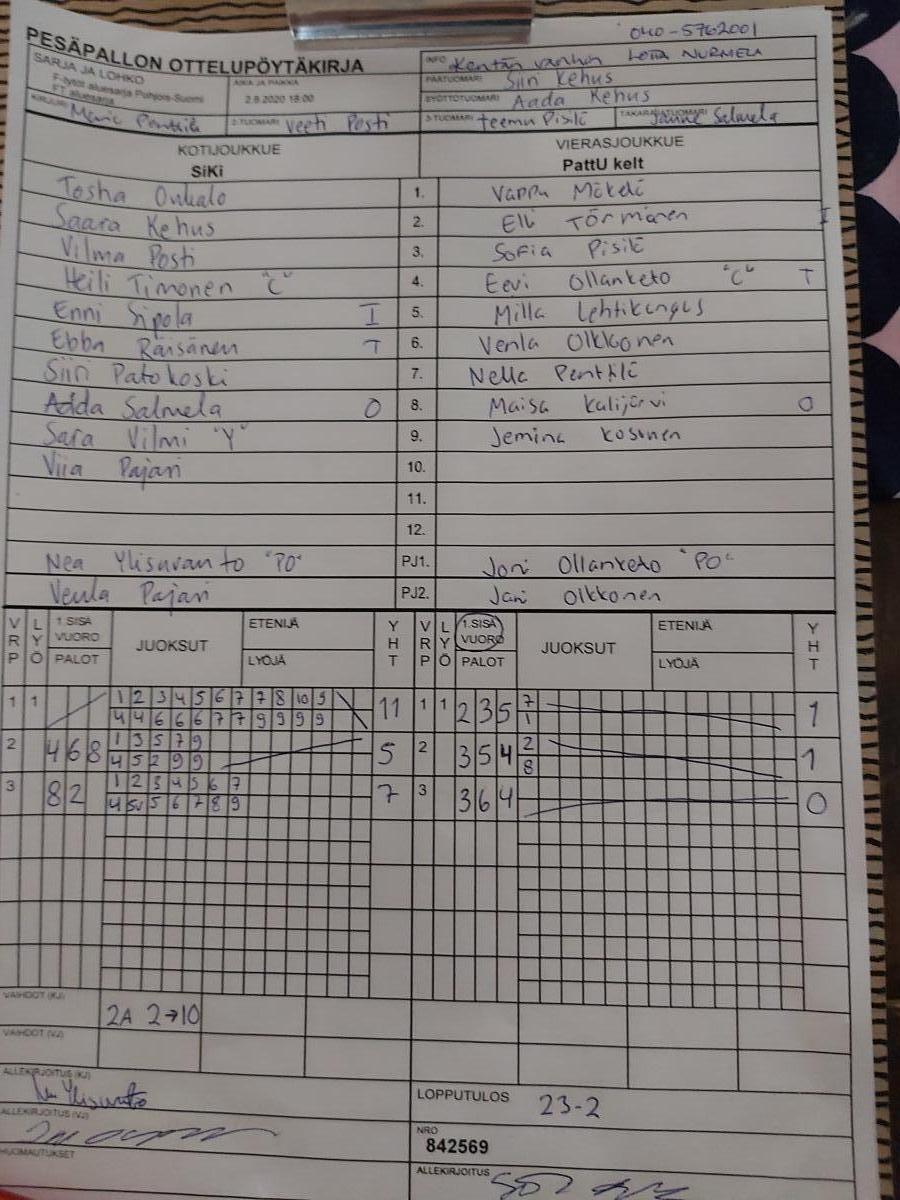 040-5762001
PESÄPALLON OTTELUPÖYTÄKIRJA
INFO Kentän vanhin LOTTA NURMELA
SARJA JA LOHKO
F-tytöt aluesarja Pohjois-Suomi
FT aluesarja
AIKA JA PAIKKA
2.8.2020 18:00
PÄÄTUOMARI Siiri Kehus
SYÖTTÖTUOMARI Aada Kehus
KIRJURI Penttilä
2-TUOMARI Veeti Posti
3-TUOMARI Teemu Pisilä
TAKARAJATUOMARI Janne Salmela
KOTIJOUKKUE
SiKi
VIERASJOUKKUE
PattU kelt
Tosha Onkalo 1. Vappu Mäkelä
Saara Kehus 2. Elli Törmänen I
Vilma Posti 3. Sofia Pisilä
Heili Timonen "C" 4. Eevi Ollanketo "C" T
Enni Sipola I 5. Milla Lehtikangas
Ebba Räisänen T 6. Venla Olkkonen
Siiri Patokoski 7. Nella Penttilä
Adda Salmela O 8. Maisa Kalijärvi O
Sara Vilmi "Y" 9. Jemina Kosonen
Viia Pajari 10.
11.
12.
Nea Ylisuvanto "PO" PJ1. Joni Ollanketo "PO"
Venla Pajari PJ2. Jani Olkkonen
VRP LYÖ 1.SISÄ VUORO PALOT JUOKSUT ETENIJÄ LYÖJÄ YHT VRP LYÖ 1.SISÄ VUORO PALOT JUOKSUT ETENIJÄ LYÖJÄ YHT
1 1 1 2 3 4 5 6 7 7 8 10 9 11 1 1 2 3 5 7 1
4 4 6 6 6 7 7 9 9 9 9 1
2 4 6 8 1 3 5 7 9 5 2 3 5 4 2 1
4 5 2 9 9 8
3 8 2 1 2 3 4 5 6 7 7 3 3 6 4 0
4 5v 5 6 7 8 9
VAIHDOT (KJ)
2A 2→10
VAIHDOT (VJ)
ALLEKIRJOITUS (KJ)
Ylisuvanto
LOPPUTULOS 23-2
ALLEKIRJOITUS (VJ)
NRO
842569
HUOMAUTUKSET
ALLEKIRJOITUS